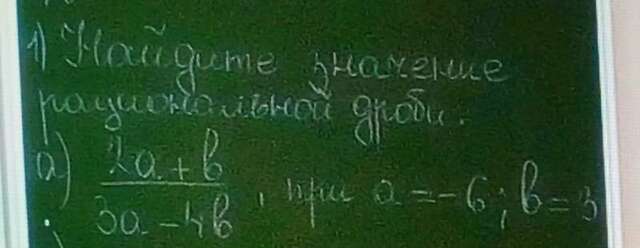 1) Найдите значение
рациональной дроби.
а) 2a + b
3a - 4b , при a = -6; b = 3